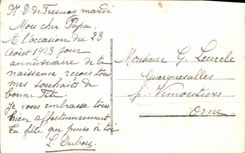 Mon cher Papa
A l'occasion du 23
Août 1923 jour
anniversaire de ta
naissance reçois tous
mes souhaits de
bonne Fête
Je vous embrasse tous
bien affectueusement
Ta fille qui pense à toi
L. Dubois
Monsieur G.
Guerquesalles
p. Vimoutiers
Orne